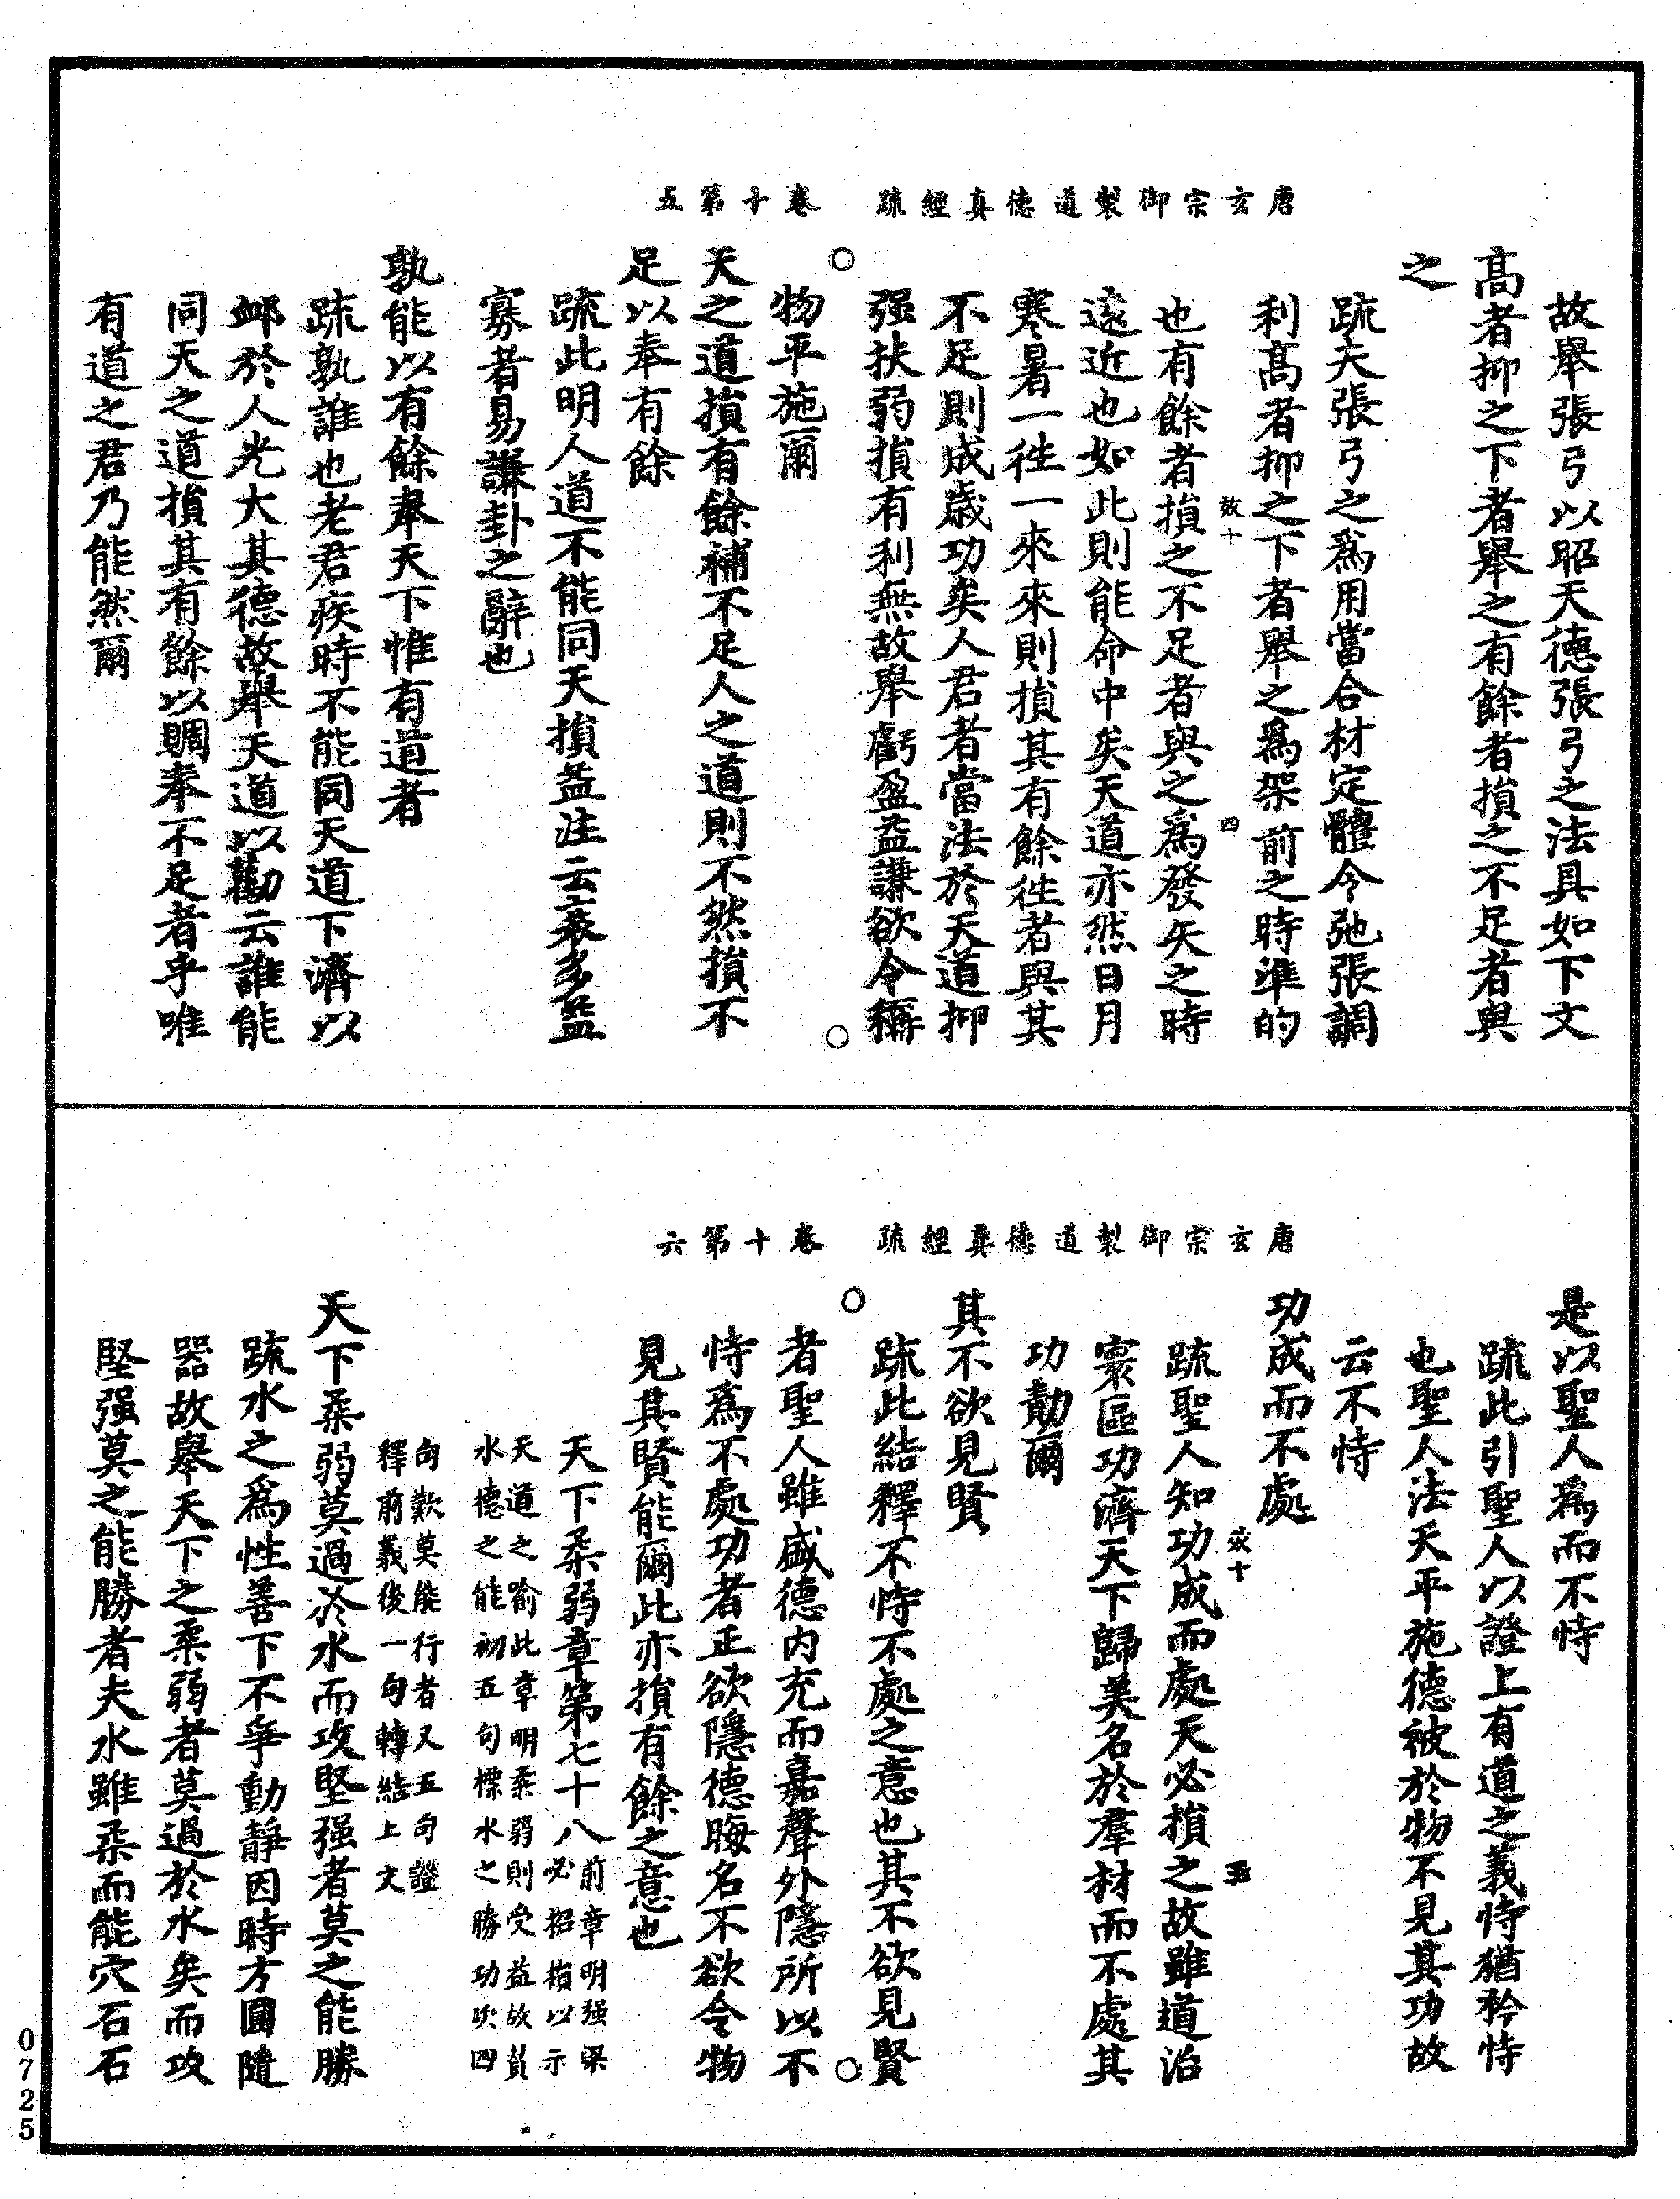 唐玄宗御製道德真經疏　卷十第五
故舉張弓以昭天德張弓之法具如下文
高者抑之下者舉之有餘者損之不足者與
之
疏天張弓之為用當合材定體令弛張調
利高者抑之下者舉之為架前之時準的
效十　四
也有餘者損之不足者與之為發矢之時
遠近也如此則能命中矣天道亦然日月
寒暑一徃一來來則損其有餘徃者與其
不足則成歲功矣人君者當法於天道抑
强扶弱損有利無故舉虧盈益謙欲令稱
物平施爾
天之道損有餘補不足人之道則不然損不
足以奉有餘
疏此明人道不能同天損益注云裒多益
寡者易謙卦之辭也
孰能以有餘奉天下惟有道者
疏孰誰也老君疾時不能同天道下濟以
衈於人光大其德故舉天道以勸云誰能
同天之道損其有餘以賙奉不足者乎唯
有道之君乃能然爾
唐玄宗御製道德真經疏　卷十第六
是以聖人為而不恃
疏此引聖人以證上有道之義恃猶矜恃
也聖人法天平施德被於物不見其功故
云不恃
功成而不處
效十　五
疏聖人知功成而處天必損之故雖道治
寰區功濟天下歸美名於羣材而不處其
功勣爾
其不欲見賢
疏此結釋不恃不處之意也其不欲見賢
者聖人雖盛德内充而嘉聲外隱所以不
恃為不處功者正欲隱德晦名不欲令物
見其賢能爾此亦損有餘之意也
天下柔弱章第七十八前章明强梁
必招損以示
天道之喻此章明柔弱則受益故賛
水德之能初五句標水之勝功次四
句歎莫能行者又五句證
釋前義後一句轉結上文
天下柔弱莫過於水而攻堅强者莫之能勝
疏水之為性善下不爭動靜因時方圓隨
器故舉天下之柔弱者莫過於水矣而攻
堅强莫之能勝者夫水雖柔而能穴石石
0725